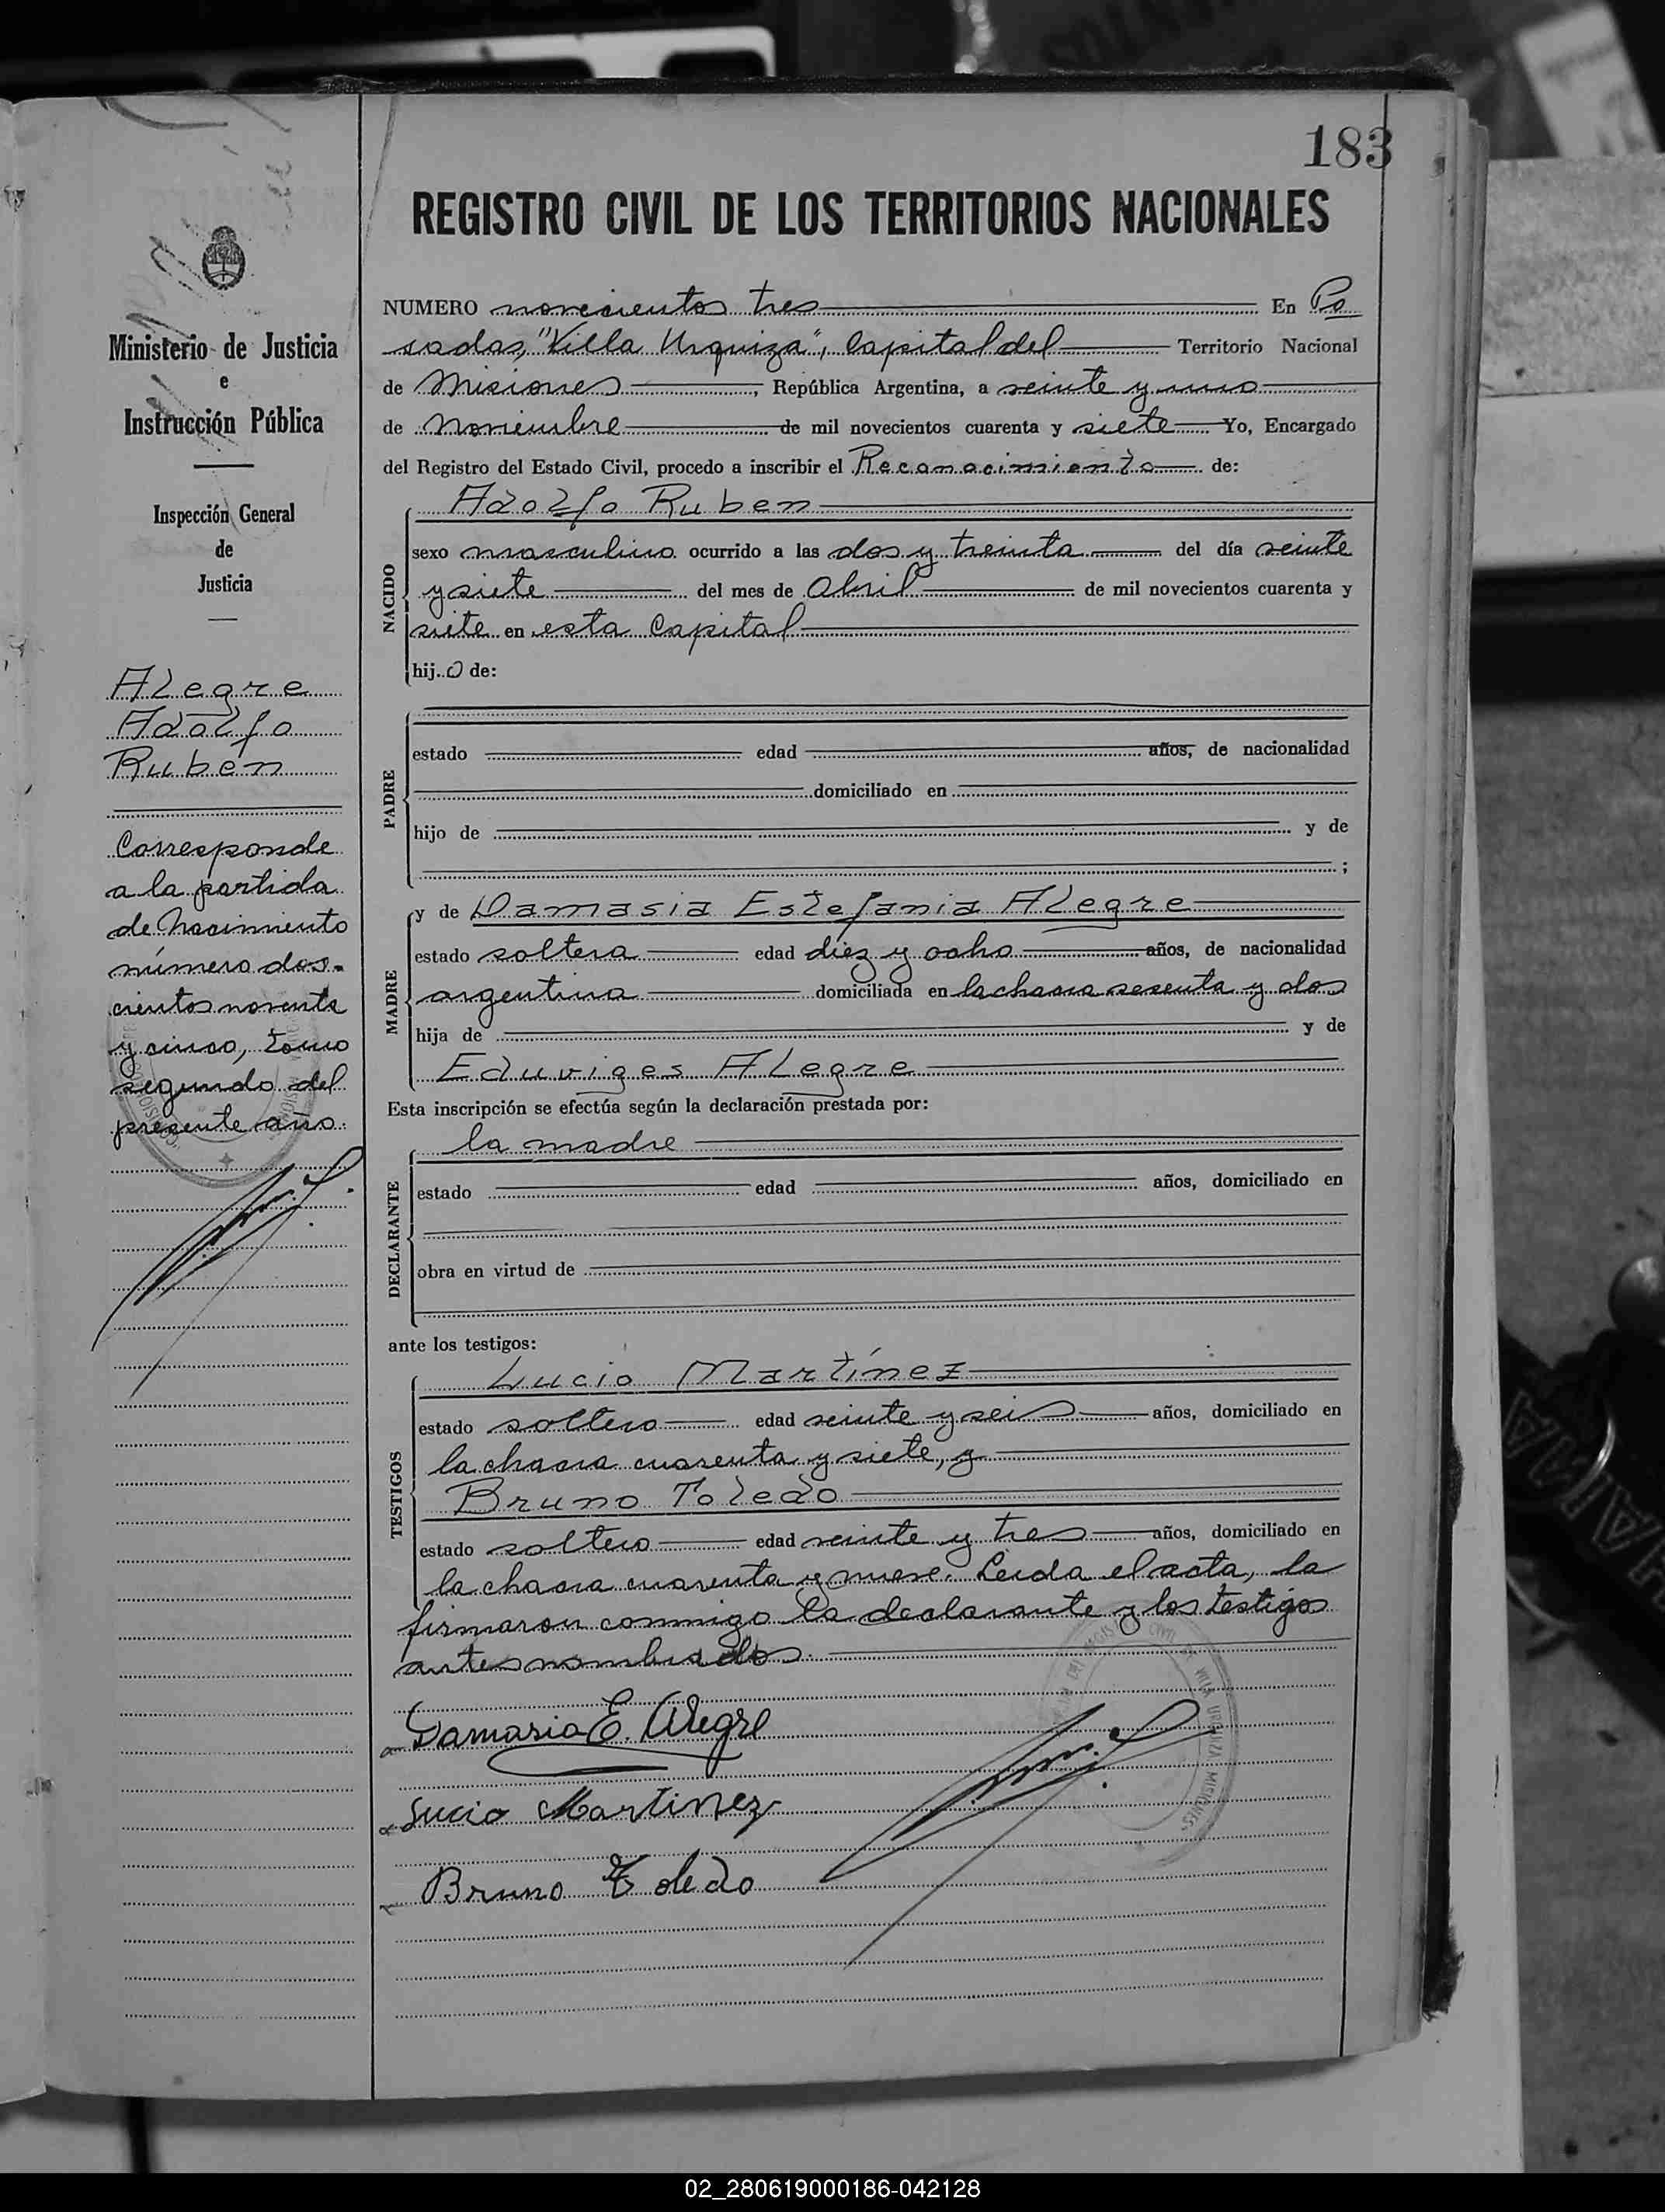 183
REGISTRO CIVIL DE LOS TERRITORIOS NACIONALES
Ministerio de Justicia
e
Instrucción Pública
Inspección General
de
Justicia
Alegre
Adolfo
Ruben
Corresponde
a la partida
de Nacimiento
número dos-
cientos noventa
y cinco, tomo
segundo del
presente año.
NUMERO novecientos tres En Po
sadas, "Villa Urquiza", Capital del Territorio Nacional
de Misiones, República Argentina, a veinte y uno
de Noviembre de mil novecientos cuarenta y siete Yo, Encargado
del Registro del Estado Civil, procedo a inscribir el Reconocimiento de:
NACIDO
Adolfo Ruben
sexo masculino ocurrido a las dos y treinta del día veinte
y siete del mes de Abril de mil novecientos cuarenta y
siete en esta Capital
hijo de:
PADRE
estado edad años, de nacionalidad
domiciliado en
hijo de y de
;
MADRE
y de Damasia Estefania Alegre
estado soltera edad diez y ocho años, de nacionalidad
argentina domiciliada en la chacra sesenta y dos
hija de y de
Eduviges Alegre
Esta inscripción se efectúa según la declaración prestada por:
DECLARANTE
la madre
estado edad años, domiciliado en
obra en virtud de
ante los testigos:
TESTIGOS
Lucio Martínez
estado soltero edad veinte y seis años, domiciliado en
la chacra cuarenta y siete, y
Bruno Toledo
estado soltero edad veinte y tres años, domiciliado en
la chacra cuarenta y nueve. Leida el acta, la
firmaron conmigo la declarante y los testigos
antes nombrados.
Damasia E. Alegre
Lucio Martinez
Bruno Toledo
02_280619000186-042128